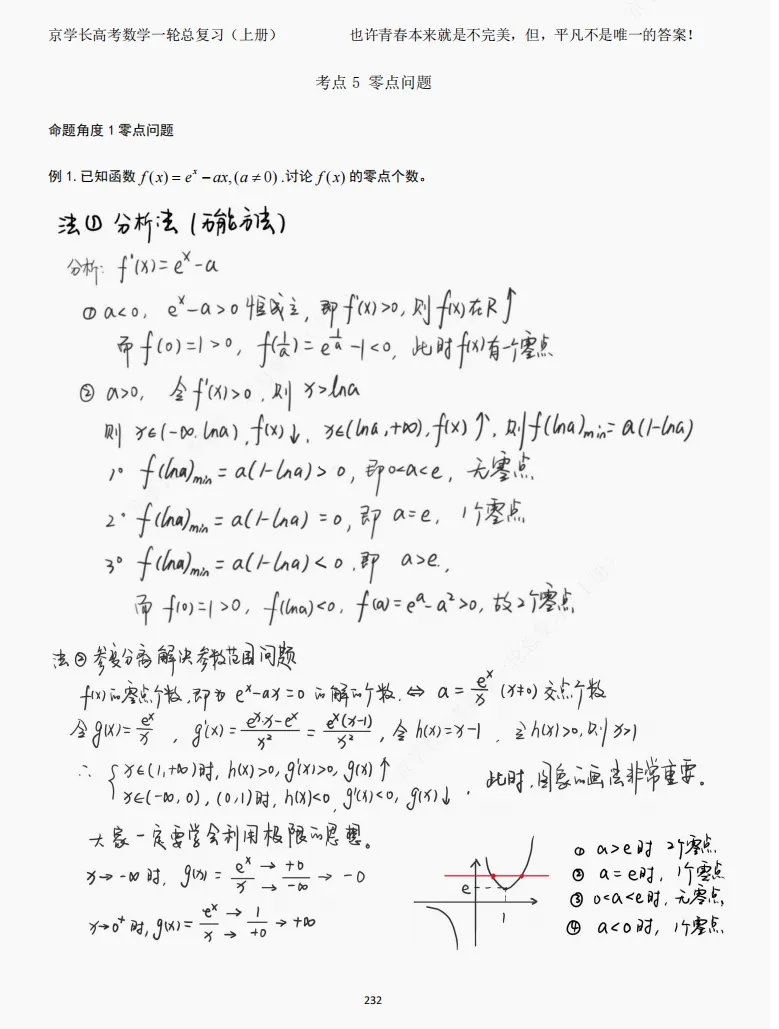 京学长高考数学一轮总复习（上册） 也许青春本来就是不完美，但，平凡不是唯一的答案！
考点 5 零点问题
命题角度 1 零点问题
例 1. 已知函数 f(x) = e^x − ax, (a ≠ 0) .讨论 f(x) 的零点个数。
法① 分析法 (万能方法)
分析: f'(x) = e^x - a
① a<0, e^x - a > 0 恒成立, 即 f'(x)>0, 则 f(x) 在 R ↑
而 f(0)=1>0, f(1/a) = e^(1/a) - 1 < 0, 此时 f(x) 有一个零点
② a>0, 令 f'(x)>0, 则 x>lna
则 x∈(-∞, lna), f(x)↓, x∈(lna, +∞), f(x)↑, 则 f(lna)min = a(1-lna)
1° f(lna)min = a(1-lna) > 0, 即 0<a<e, 无零点
2° f(lna)min = a(1-lna) = 0, 即 a=e, 1个零点
3° f(lna)min = a(1-lna) < 0, 即 a>e.,
而 f(0)=1>0, f(lna)<0, f(a)=e^a-a^2>0, 故2个零点
法② 参变分离解决参数范围问题
f(x)的零点个数, 即为 e^x-ax=0 的解的个数, ⇔ a = e^x/x (x≠0) 交点个数
令 g(x)=e^x/x , g'(x) = (e^x·x-e^x)/x^2 = e^x(x-1)/x^2 , 令 h(x)=x-1 , 令 h(x)>0, 则 x>1
∴ { x∈(1,+∞)时, h(x)>0, g'(x)>0, g(x)↑
x∈(-∞,0), (0,1)时, h(x)<0, g'(x)<0, g(x)↓ , 此时, 图象的画法非常重要。
大家一定要学会利用极限的思想。
x→-∞时, g(x) = e^x/x → +0/-∞ → -0
x→0⁺时, g(x)= e^x/x → 1/+0 → +∞
e
1
① a>e时 2个零点
② a=e时, 1个零点
③ 0<a<e时, 无零点,
④ a<0时, 1个零点
232